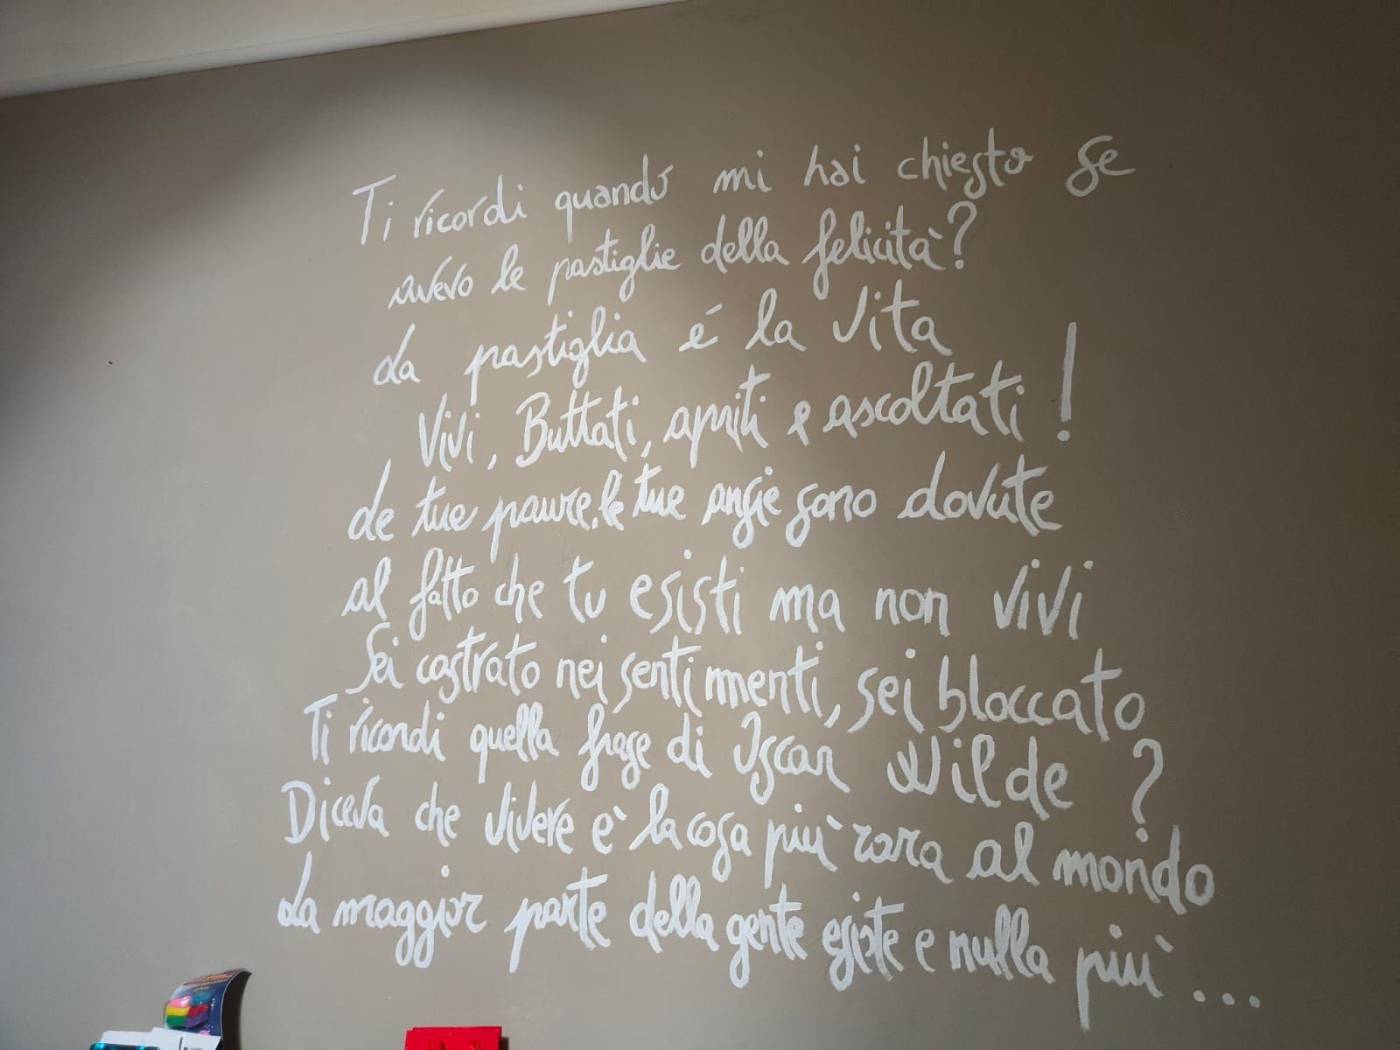 Ti ricordi quando mi hai chiesto se
avevo le pastiglie della felicità?
La pastiglia é la vita
Vivi, Buttati, apriti e ascoltati!
Le tue paure, le tue ansie sono dovute
al fatto che tu esisti ma non vivi
Sei castrato nei sentimenti, sei bloccato
Ti ricordi quella frase di Oscar Wilde?
Diceva che vivere è la cosa più rara al mondo
La maggior parte della gente esiste e nulla più...